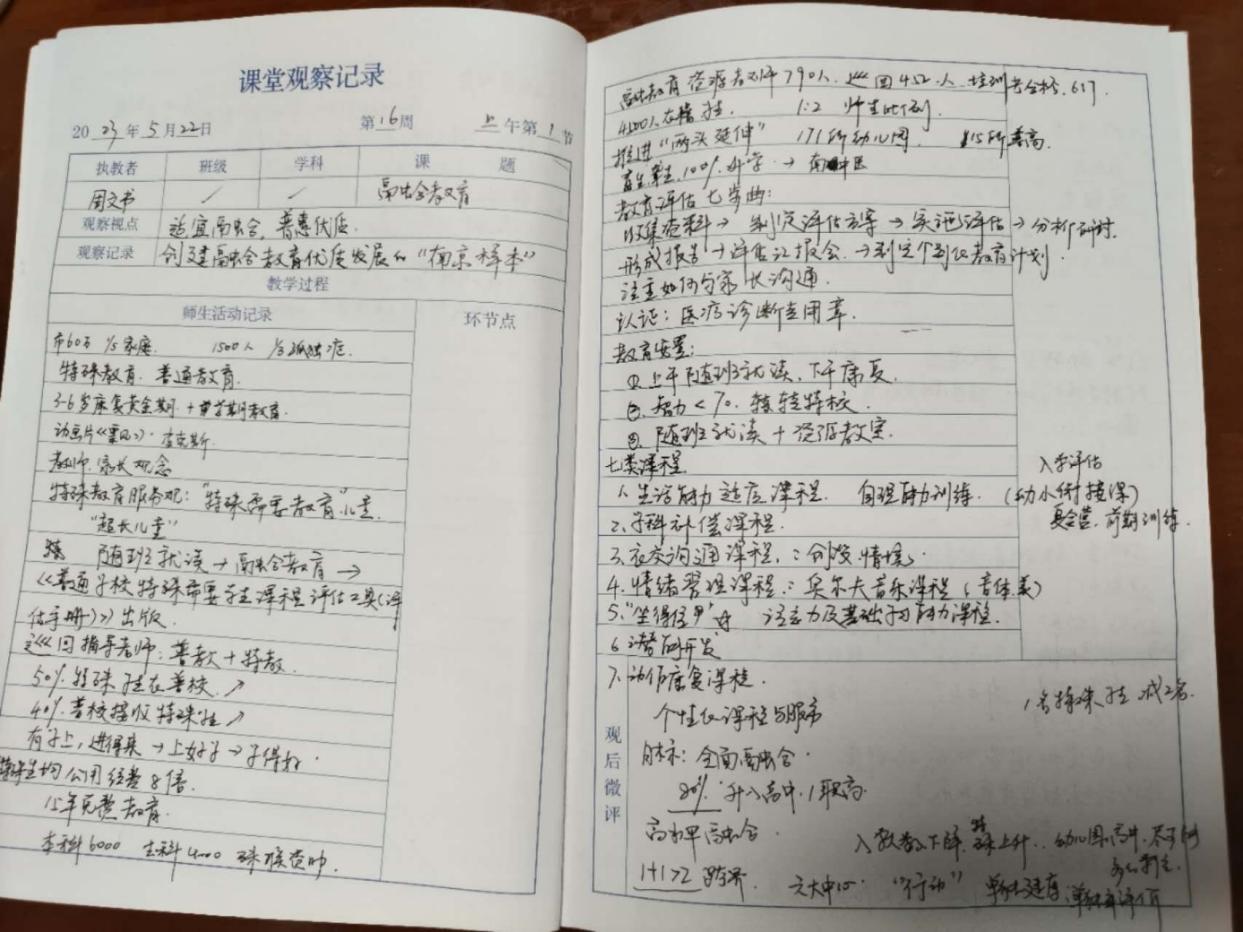 课堂观察记录
2023年5月22日 第16周 上午第1节
执教者 班级 学科 课题
周文书 / / 融合教育
观察视点 适宜融合,普惠优质
观察记录 创建融合教育优质发展的“南京样本”
教学过程
师生活动记录 环节点
市60万 1/5家庭 1500人 1/3孤独症
特殊教育 普通教育
3-6岁康复黄金期 + 早期教育
动画片《 》
教师 家长观念
特殊教育服务观:“特殊需要教育”儿童
“超长儿童”
随班就读→融合教育→
《普通学校特殊需要学生课程评估工具(评
估手册)》出版
巡回指导老师:普教+特教
50%特殊学生在普校↗
40%普校接收特殊生↗
有学上,进得来→上好学→学得好
特殊生均公用经费8倍
15年完整教育
本科6000 专科4000
融合教育资源教师790人 巡回452人 培训 合格617
4200人在籍学生 1:2 师生比例
推进“两头延伸” 171所幼儿园 15所普高
盲生 100%升学→南中医
教育评估七步曲:
收集资料→制定评估方案→实施评估→分析研讨
形成报告→评估汇报会→制定个别化教育计划
注重如何与家长沟通
认证:医疗诊断专用章
教育安置:
①上午随班就读,下午康复
②智力<70 转特校
③随班就读+资源教室
七类课程
入学评估
1.生活能力适应课程 自理能力训练 (幼小衔接课)
夏令营 前期训练
2.学科补偿课程
3.社交沟通课程:创设情境
4.情绪管理课程:奥尔夫音乐课程(音体美)
5.“坐得住” 注意力及基础学习能力课程
6.潜能开发
7.动作康复课程
个性化课程与服务
1名特殊学生减2名
观后微评
目标:全面融合
80%升入高中/职高
高水平融合
入学数下降 特殊上升 幼儿园 高中
1+1>2 跨界 六大中心 “行动”